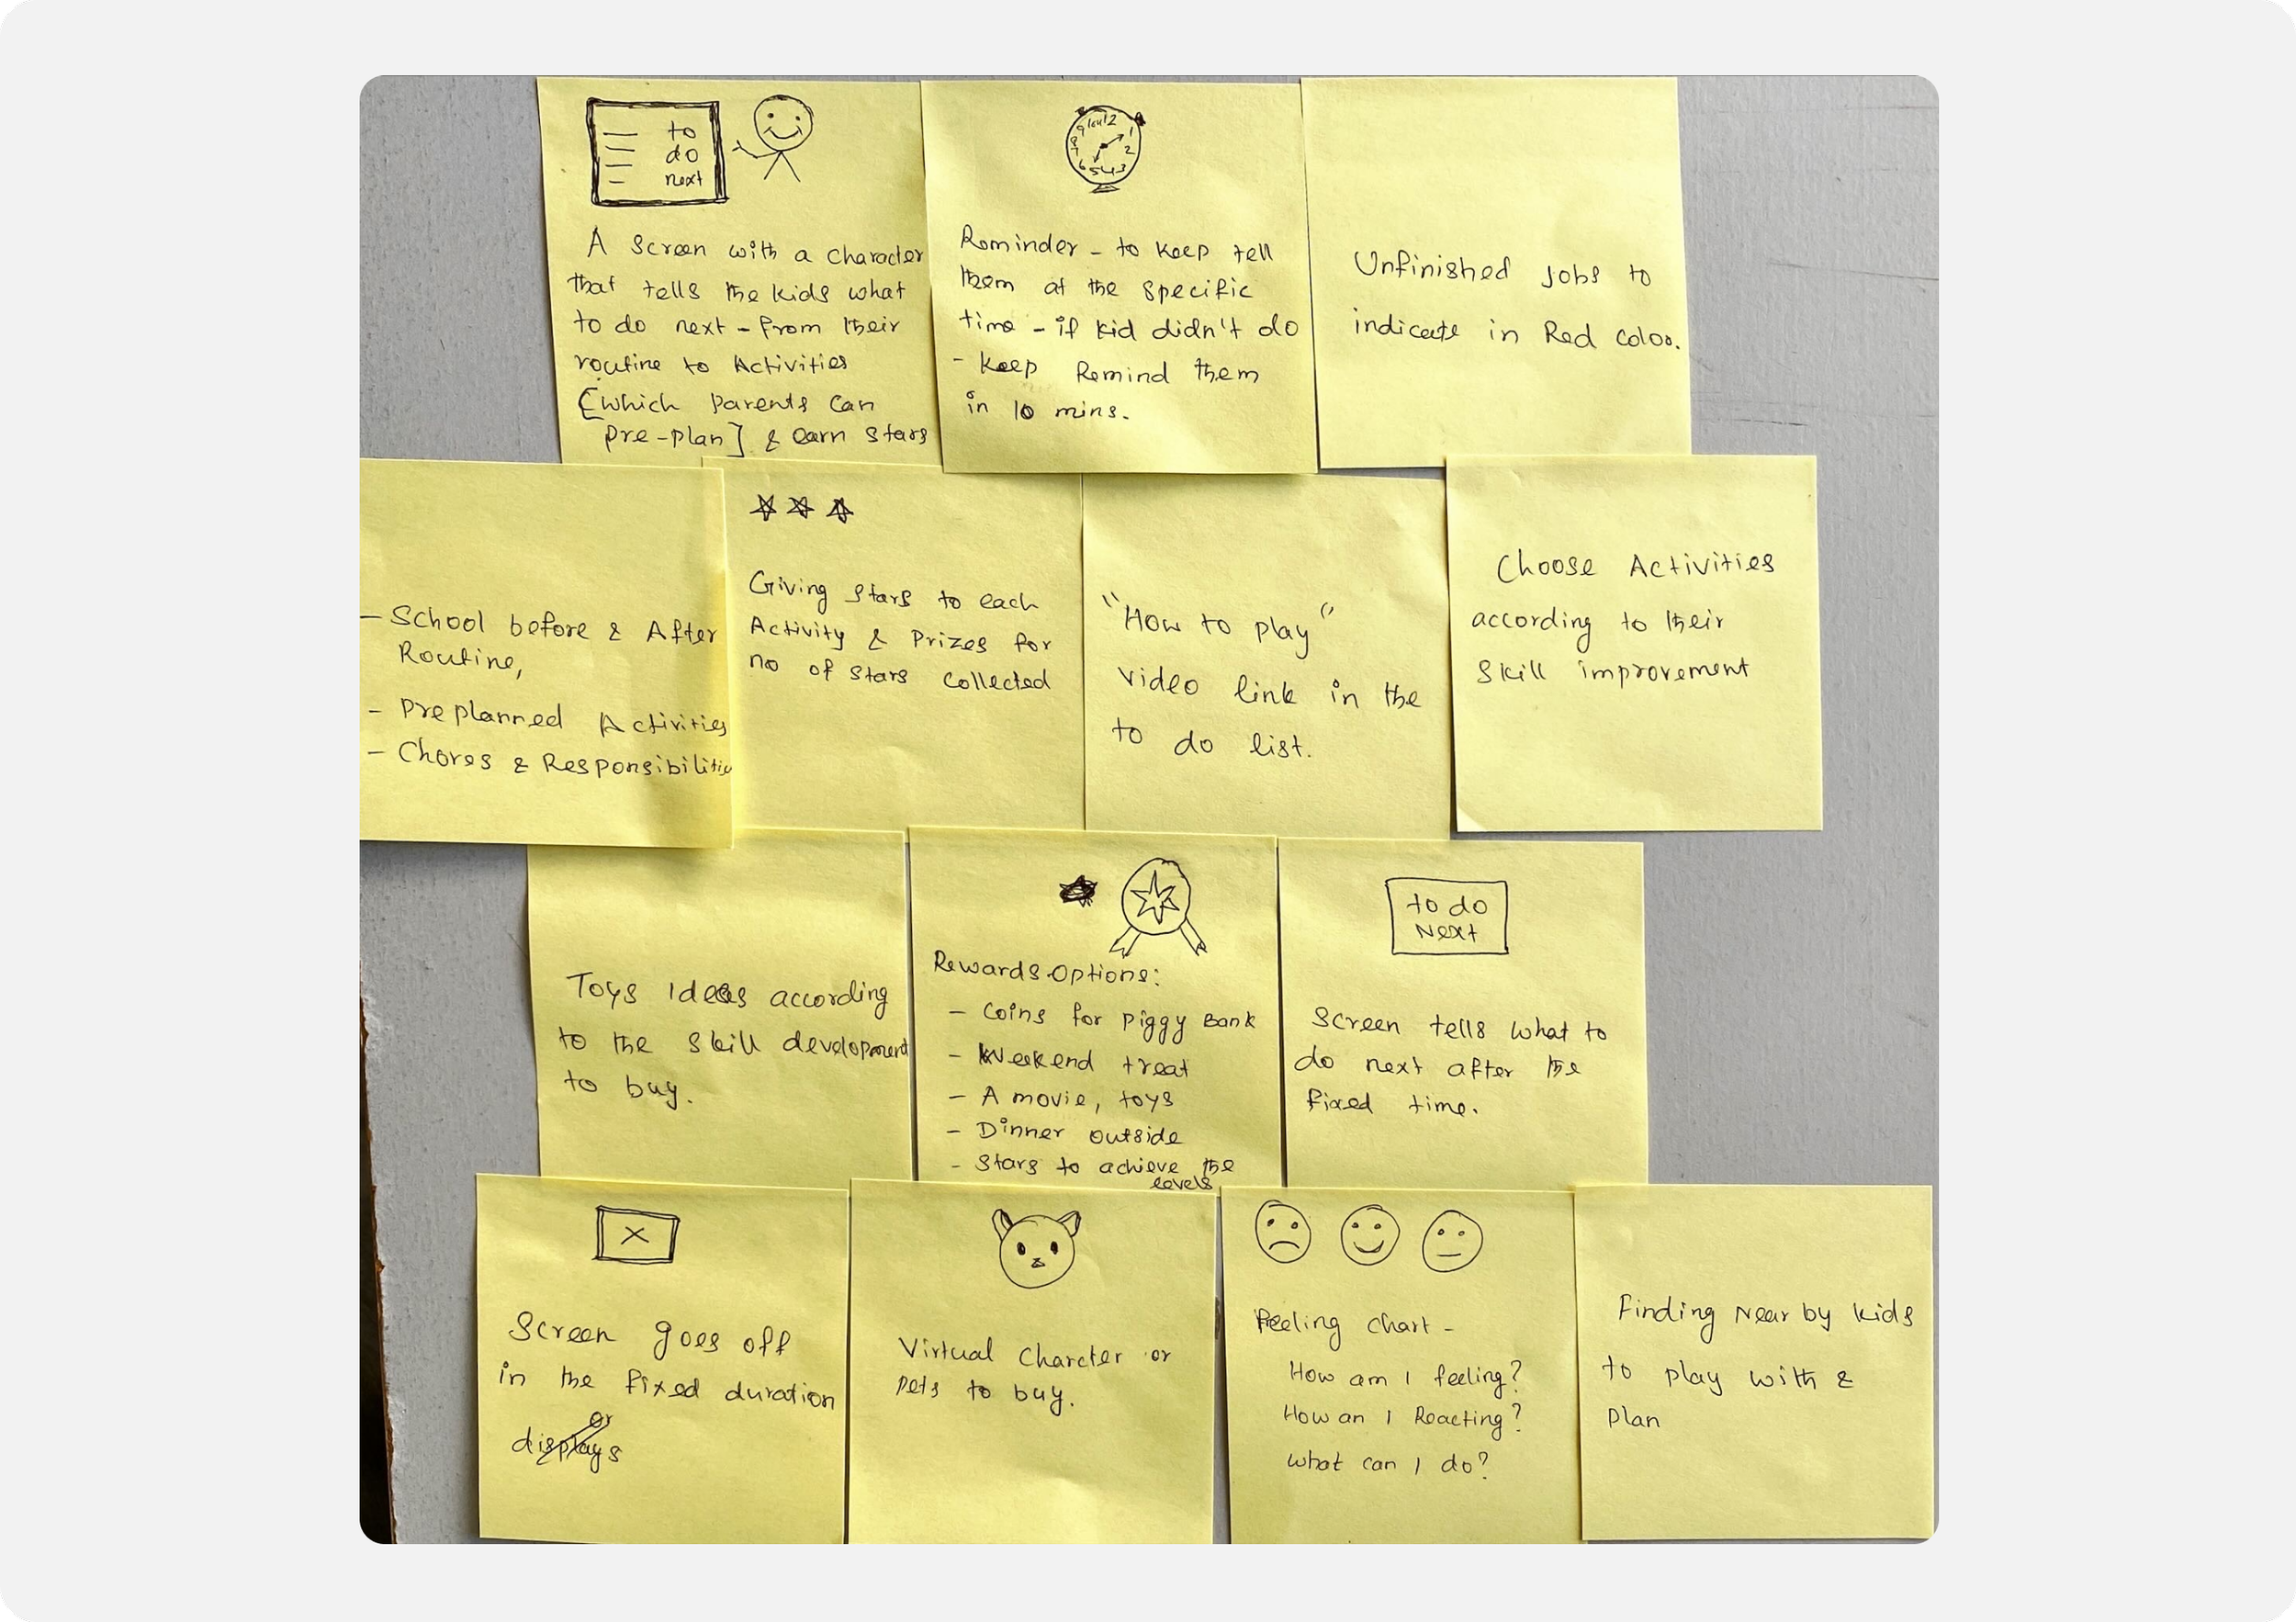 to
do
next
A Screen with a character
that tells the kids what
to do next - from their
routine to Activities
[which parents can
pre-plan] & earn stars
Reminder - to keep tell
them at the specific
time - if kid didn't do
- keep Remind them
in 10 mins.
Unfinished jobs to
indicate in Red color.
- School before & After
Routine,
- Preplanned Activities
- Chores & Responsibilities
Giving stars to each
Activity & Prizes for
no of stars collected
"How to play"
video link in the
to do list.
Choose Activities
according to their
skill improvement
Toys Ideas according
to the skill development
to buy.
Rewards Options:
- Coins for Piggy Bank
- Weekend treat
- A movie, toys
- Dinner outside
- Stars to achieve the
levels
to do
Next
Screen tells what to
do next after the
fixed time.
Screen goes off
in the fixed duration
or
displays
Virtual Charcter or
pets to buy.
Feeling chart -
How am I feeling?
How an I Reacting?
What can I do?
Finding Near by kids
to play with &
plan